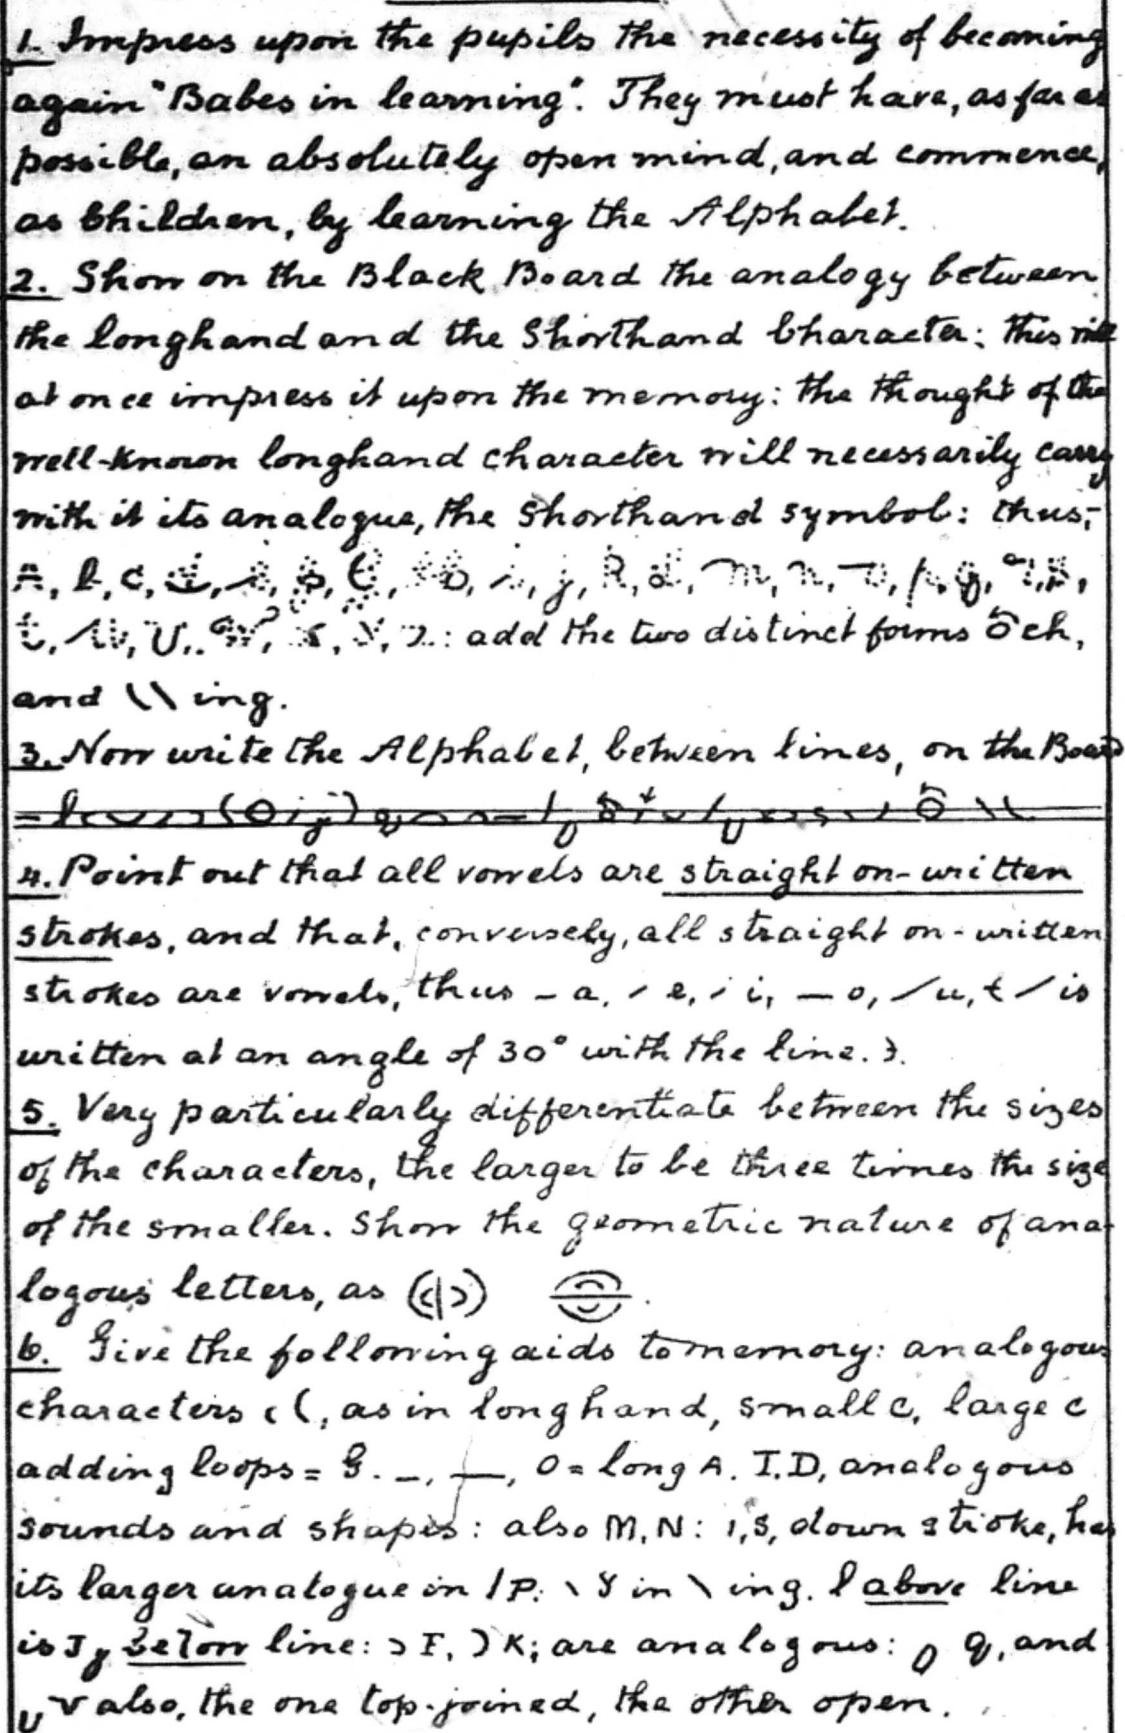 1. Impress upon the pupils the necessity of becoming
again "Babes in learning". They must have, as far as
possible, an absolutely open mind, and commence,
as Children, by learning the Alphabet.
2. Show on the Black Board the analogy between
the longhand and the Shorthand Character; this will
at once impress it upon the memory: the thought of the
well-known longhand character will necessarily carry
with it its analogue, the Shorthand symbol: thus;-
A, b, c, d, e, f, g, h, i, j, k, l, m, n, o, p, q, r, s,
t, u, v, w, x, y, z: add the two distinct forms ch,
and \ \ ing.
3. Now write the Alphabet, between lines, on the Board
4. Point out that all vowels are straight on-written
strokes, and that, conversely, all straight on-written
strokes are vowels, thus – a, / e, / i, — o, / u, t / is
written at an angle of 30° with the line.
5. Very particularly differentiate between the sizes
of the characters, the larger to be three times the size
of the smaller. Show the geometric nature of ana-
logous letters, as
6. Give the following aids to memory: analogous
characters c (, as in longhand, small c, large c
adding loops = G. –, —, O = long A. T.D, analogous
sounds and shapes: also M, N: ı, S, down stroke, has
its larger analogue in / P: \ Y in \ ing. l above line
is J below line: ɔ F, ) K; are analogous: q, and
v also, the one top-joined, the other open.